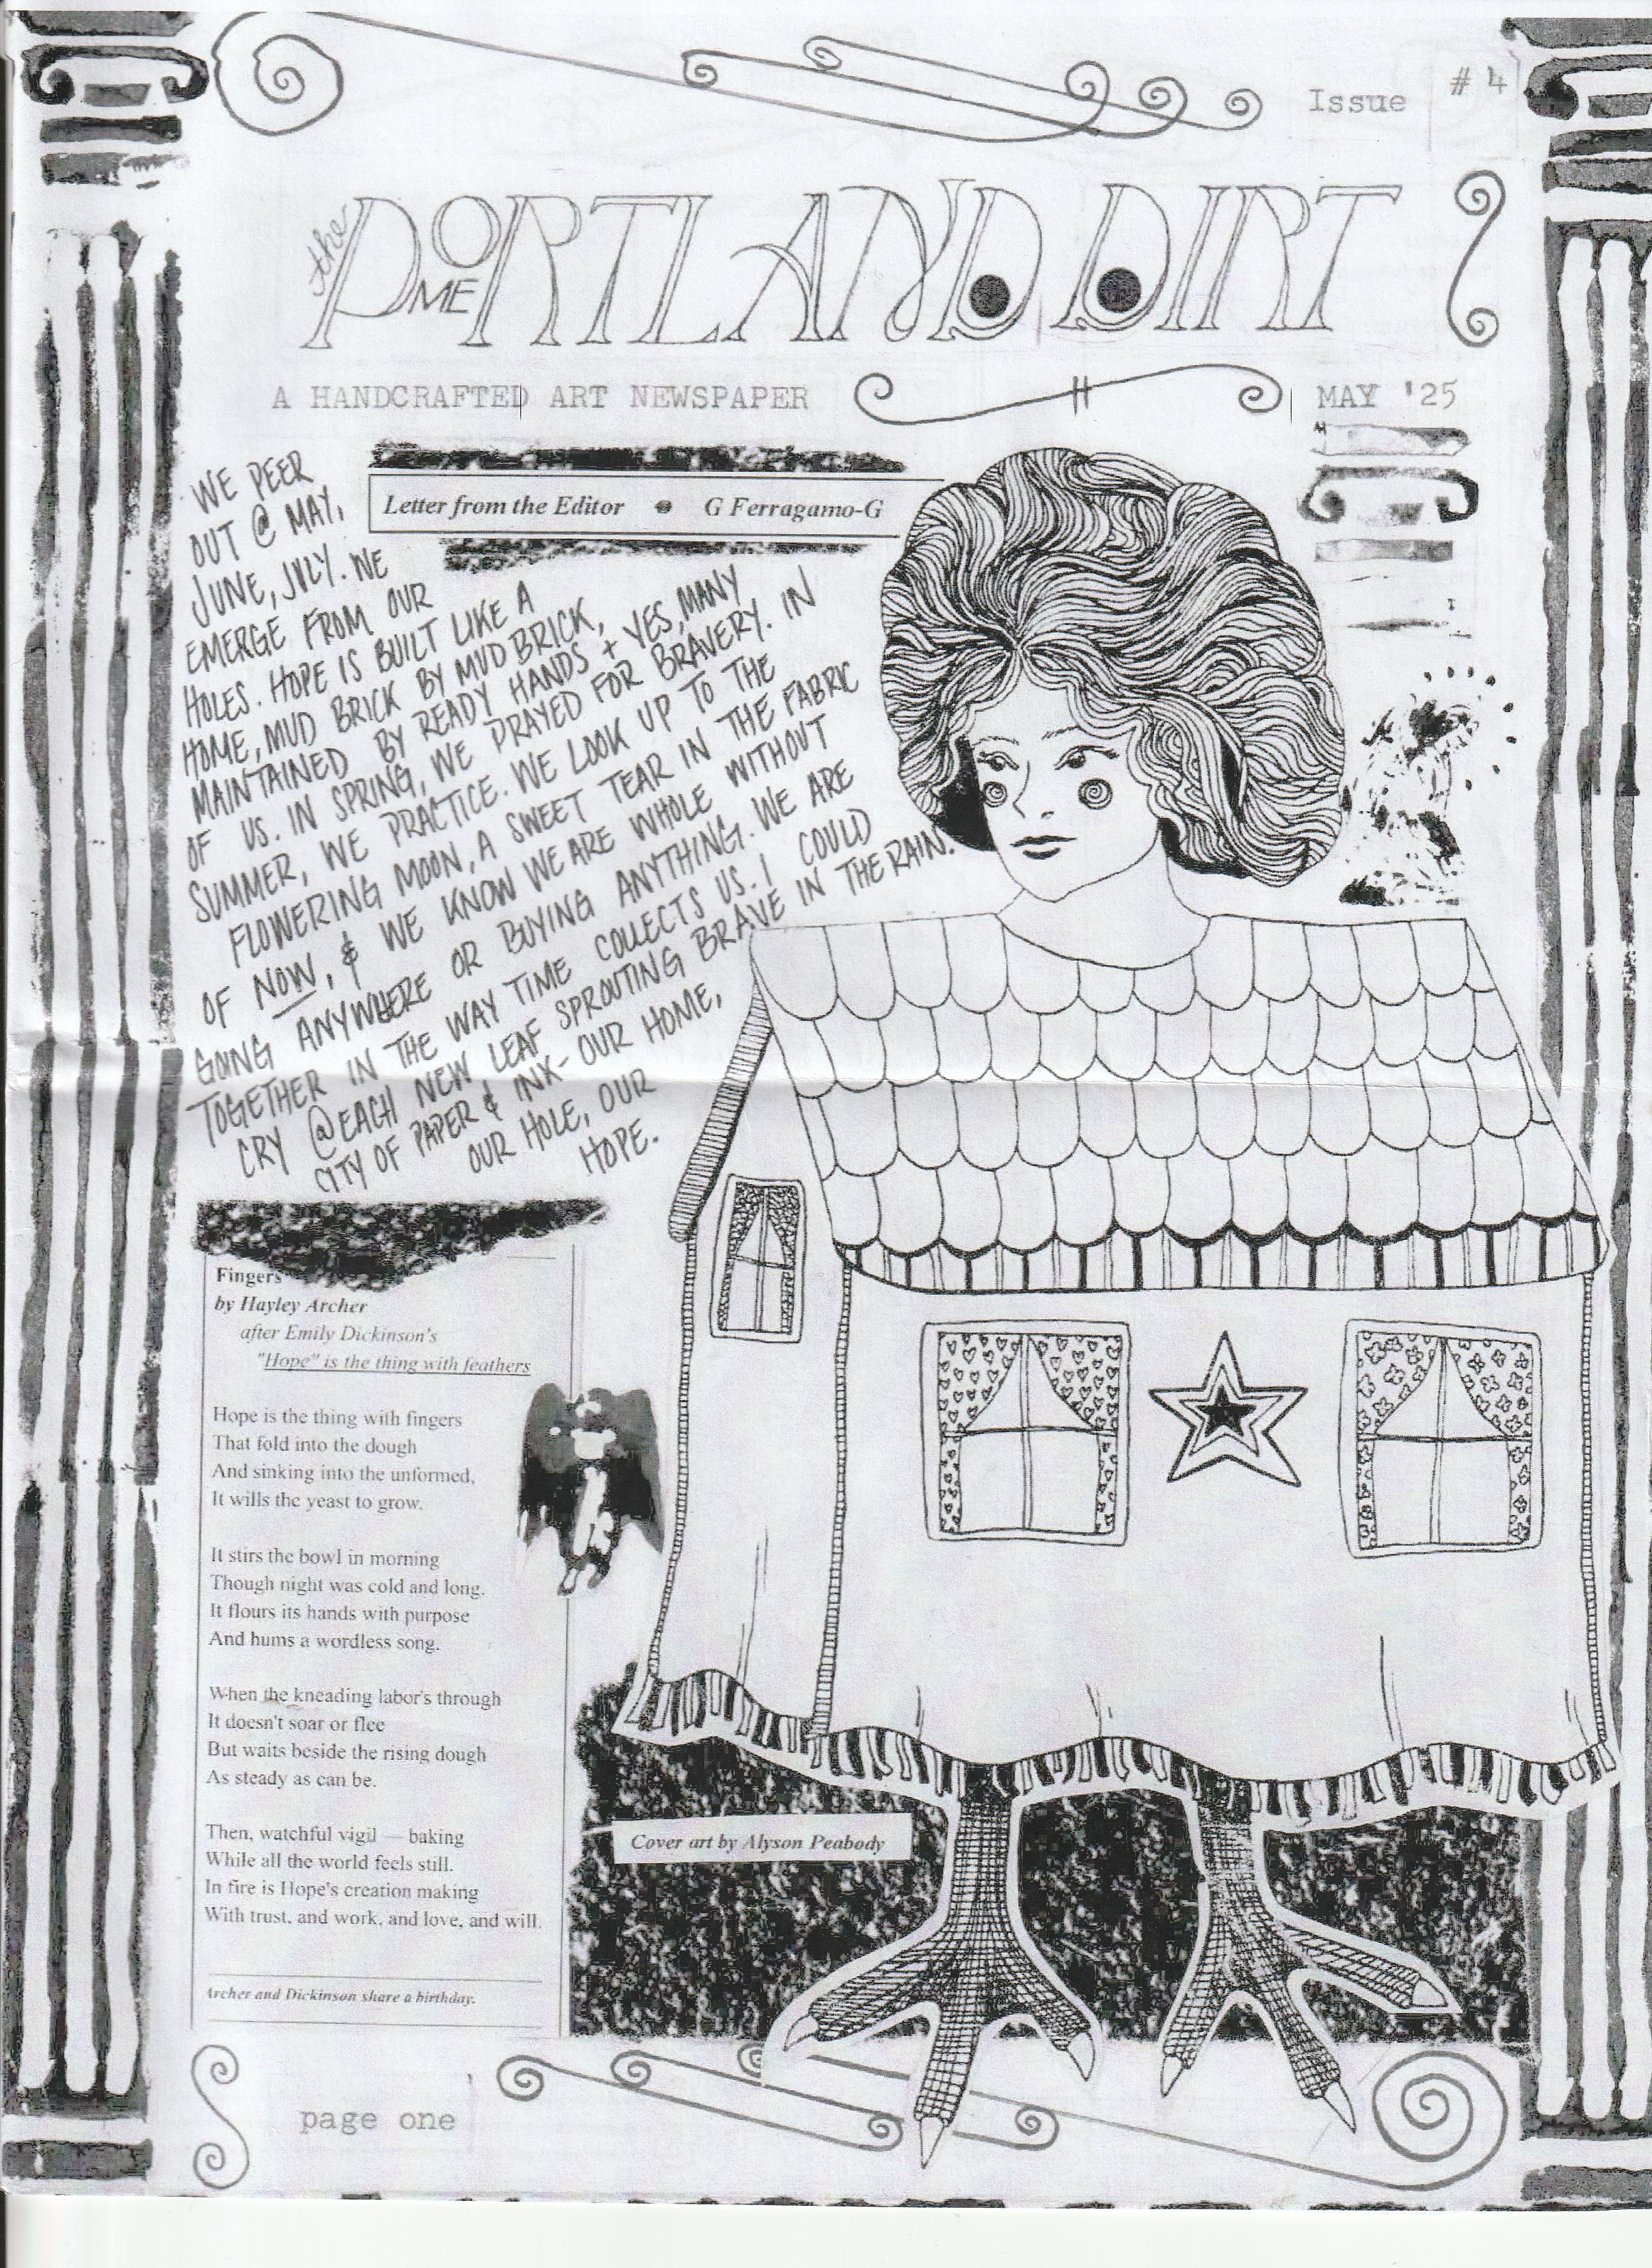 Issue # 4
the PORTLAND DIRT
ME
A HANDCRAFTED ART NEWSPAPER
MAY '25
Letter from the Editor G Ferragamo-G
WE PEER
OUT @ MAY,
JUNE, JULY. WE
EMERGE FROM OUR
HOLES. HOPE IS BUILT LIKE A
HOME, MUD BRICK BY MUD BRICK,
MAINTAINED BY READY HANDS + YES, MANY
OF US. IN SPRING, WE PRAYED FOR BRAVERY. IN
SUMMER, WE PRACTICE. WE LOOK UP TO THE
FLOWERING MOON, A SWEET TEAR IN THE FABRIC
OF NOW, & WE KNOW WE ARE WHOLE WITHOUT
GOING ANYWHERE OR BUYING ANYTHING. WE ARE
TOGETHER IN THE WAY TIME COLLECTS US. I COULD
CRY @ EACH NEW LEAF SPROUTING BRAVE IN THE RAIN.
CITY OF PAPER & INK - OUR HOME,
OUR HOLE, OUR
HOPE.
Fingers
by Hayley Archer
after Emily Dickinson's
"Hope" is the thing with feathers
Hope is the thing with fingers
That fold into the dough
And sinking into the unformed,
It wills the yeast to grow.
It stirs the bowl in morning
Though night was cold and long.
It flours its hands with purpose
And hums a wordless song.
When the kneading labor's through
It doesn't soar or flee
But waits beside the rising dough
As steady as can be.
Then, watchful vigil — baking
While all the world feels still.
In fire is Hope's creation making
With trust, and work, and love, and will.
Archer and Dickinson share a birthday.
Cover art by Alyson Peabody
page one